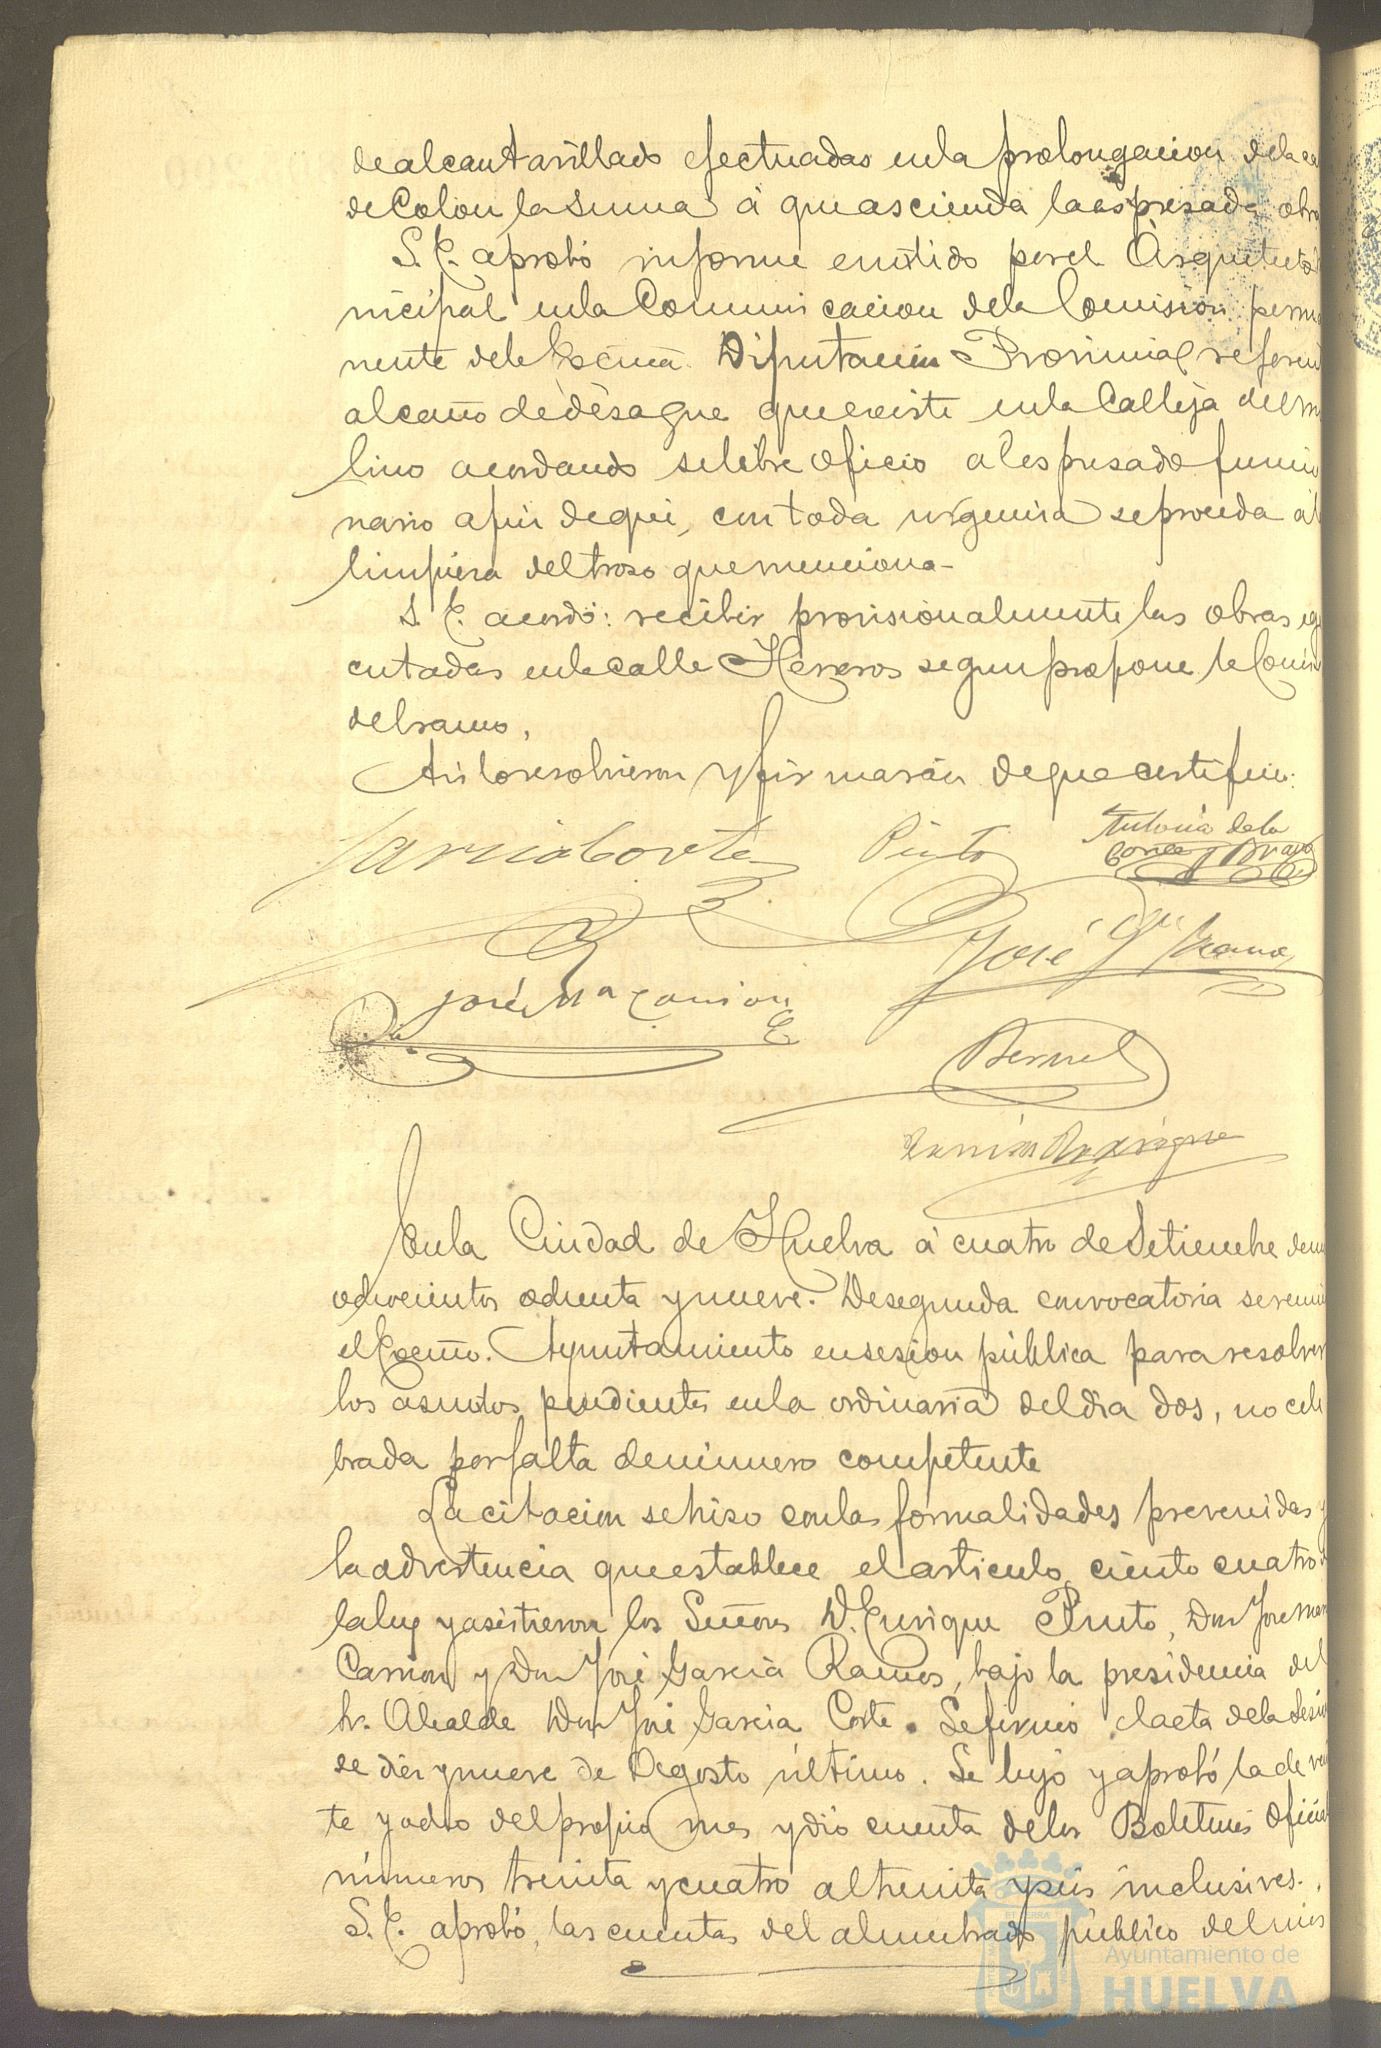 de alcantarillado efectuadas en la prolongacion de la ca
de Colon la suma á que ascienda la espresada obra
S. E. aprobó informe emitido por el Arquitecto
nicipal en la Comunicacion de la Comision perma
nente de la Excma. Diputacion Provincial referen
al caño de desague que existe en la Calleja del mo
lino acordando se libre oficio al espresado funcio
nario a fin de que, con toda urgencia se proceda á l
limpieza del troso que menciona-
S. E. acordó: recibir provisionalmente las obras eje
cutadas en la calle Herreros segun propone la Comis
del ramo,
Asi lo resolvieron y firmarán de que certifico:
Garcia Corte
Pinto
Antonio de la
Corte y Bravo
José Gª Ramos
José Mª Carrion
Bernal
Ramón Rodriguez
En la Ciudad de Huelva á cuatro de Setiembre de mi
ochocientos ochenta y nueve. De segunda convocatoria se reunió
el Excmo. Ayuntamiento en sesion pública para resolver
los asuntos pendientes en la ordinaria del dia dos, no cele
brada por falta de número competente
La citacion se hizo con las formalidades prevenidas y
la advertencia que establece el articulo ciento cuatro d
la ley y asistieron los Señores D. Enrique Pinto, Don Jose Mar
Carrion y Don José Garcia Ramos, bajo la presidencia del
Sr. Alcalde Don José Garcia Corte. Se firmó el acta de la sesion
de diez y nueve de Agosto último. Se leyó y aprobó la de vein
te y ocho del propio mes y dió cuenta de los Boletines Oficial
números treinta y cuatro al treinta y seis inclusives.
S. E. aprobó, las cuentas del alumbrado público del mes
Ayuntamiento de
HUELVA